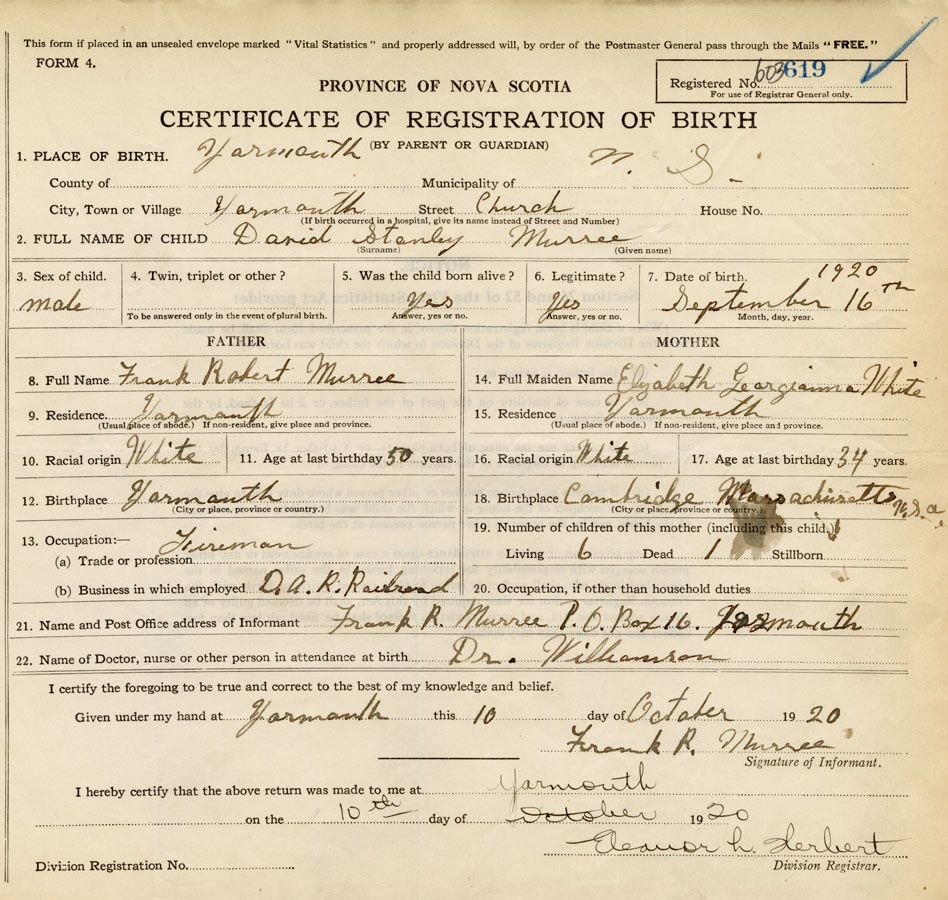 This form if placed in an unsealed envelope marked "Vital Statistics" and properly addressed will, by order of the Postmaster General pass through the Mails "FREE."
FORM 4.
Registered No. 603619
For use of Registrar General only.
PROVINCE OF NOVA SCOTIA
CERTIFICATE OF REGISTRATION OF BIRTH
(BY PARENT OR GUARDIAN)
1. PLACE OF BIRTH. Yarmouth N. S.
County of Municipality of
City, Town or Village Yarmouth Street Church House No.
(If birth occurred in a hospital, give its name instead of Street and Number)
2. FULL NAME OF CHILD David Stanley Murree
(Surname) (Given name)
3. Sex of child. 4. Twin, triplet or other? 5. Was the child born alive? 6. Legitimate? 7. Date of birth. 1920
male Yes Yes September 16th
To be answered only in the event of plural birth. Answer, yes or no. Answer, yes or no. Month, day, year.
FATHER MOTHER
8. Full Name Frank Robert Murree 14. Full Maiden Name Elizabeth Georgianna White
9. Residence. Yarmouth 15. Residence Yarmouth
(Usual place of abode.) If non-resident, give place and province. (Usual place of abode.) If non-resident, give place and province.
10. Racial origin White 11. Age at last birthday 50 years. 16. Racial origin White 17. Age at last birthday 34 years.
12. Birthplace Yarmouth 18. Birthplace Cambridge Massachusetts U.S.a
(City or place, province or country.) (City or place, province or country.)
13. Occupation:— Fireman 19. Number of children of this mother (including this child.)
(a) Trade or profession Living 6 Dead 1 Stillborn
(b) Business in which employed D.A.R. Railroad 20. Occupation, if other than household duties
21. Name and Post Office address of Informant Frank R. Murree P. O. Box 16. Yarmouth
22. Name of Doctor, nurse or other person in attendance at birth Dr. Williamson
I certify the foregoing to be true and correct to the best of my knowledge and belief.
Given under my hand at Yarmouth this 10 day of October 1920
Frank R. Murree
Signature of Informant.
I hereby certify that the above return was made to me at Yarmouth
on the 10th day of October 1920
Eleanor L. Herbert
Division Registration No. Division Registrar.